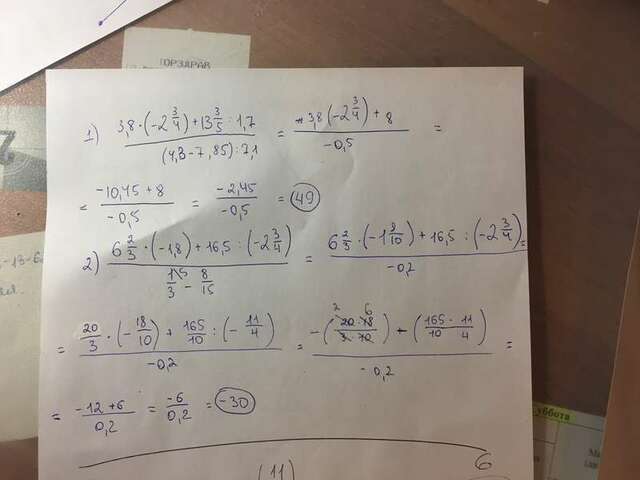 ГОРЗДРАВ
1) (3,8·(-2 3/4)+13 3/5:1,7)/((4,3-7,85):7,1) = (3,8(-2 3/4)+8)/(-0,5) =
= (-10,45+8)/(-0,5) = (-2,45)/(-0,5) = 49
2) (6 2/3·(-1,8)+16,5:(-2 3/4))/(1/3 \5 - 8/15) = (6 2/3·(-1 8/10)+16,5:(-2 3/4))/(-0,2) =
= (20/3·(-18/10)+165/10:(-11/4))/(-0,2) = (-(20·18/3·10)-(165·11/10 4))/(-0,2) =
2 6
= (-12+6)/0,2 = -6/0,2 = -30
6
(11
суббота